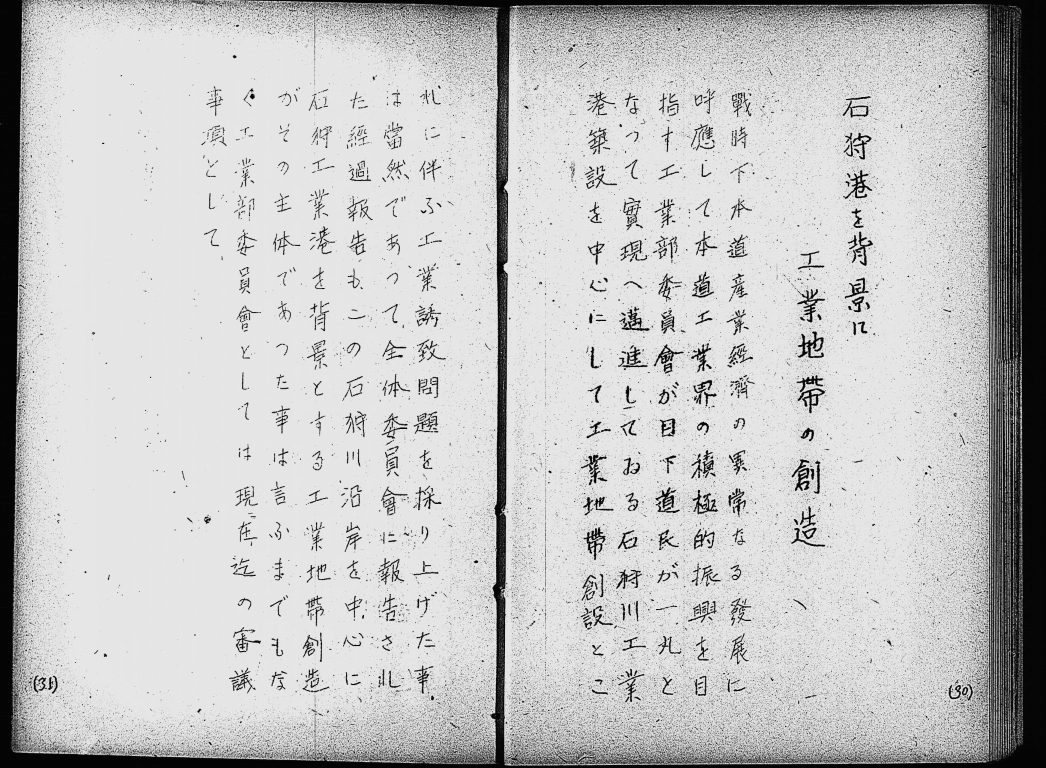 石狩港を背景に
工業地帶の創造
戰時下本道産業經濟の異常なる發展に
呼應して本道工業界の積極的振興を目
指す工業部委員會が目下道民が一丸と
なつて實現へ邁進してゐる石狩川工業
港築設を中心にして工業地帶創設とこ
(30)
れに伴ふ工業誘致問題を採り上げた事
は當然であつて全体委員會に報告され
た經過報告もこの石狩川沿岸を中心に
石狩工業港を背景とする工業地帶創造
がその主体であつた事は言ふまでもな
く工業部委員會としては現在迄の審議
事項として
(31)